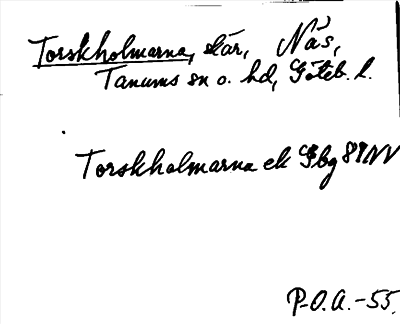 Torskholmarna, skär, Näs,
Tanums sn o. hd, Göteb. l.
Torskholmarna ek Gbg 89NV
P.O.A.-55.